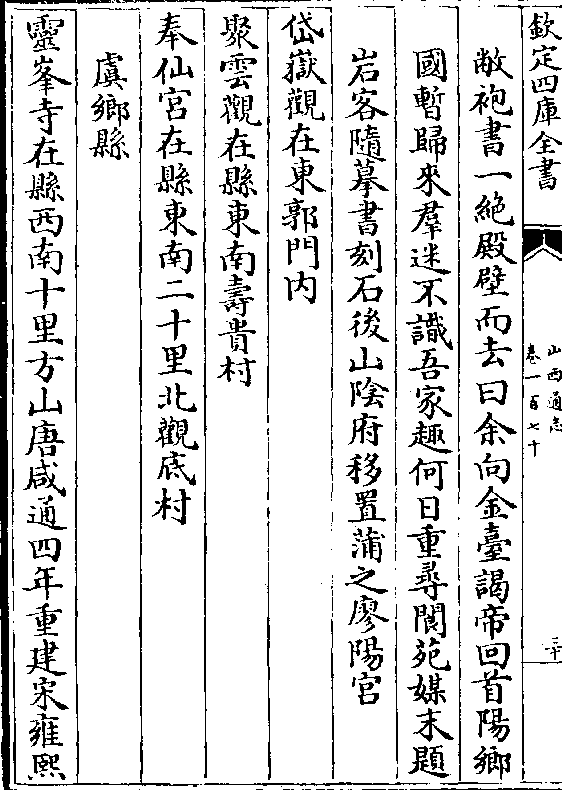 欽定四庫全書
山西通志
卷一百七十
三十
敝袍書一絶殿壁而去曰余向金臺謁帝回首陽鄉
國暫歸來羣迷不識吾家趣何日重尋閬苑媒末題
岩客隨摹書刻石後山陰府移置蒲之廖陽宮
岱嶽觀在東郭門内
聚雲觀在縣東南壽貴村
奉仙宮在縣東南二十里北觀底村
虞鄉縣
靈峯寺在縣西南十里方山唐咸通四年重建宋雍熙